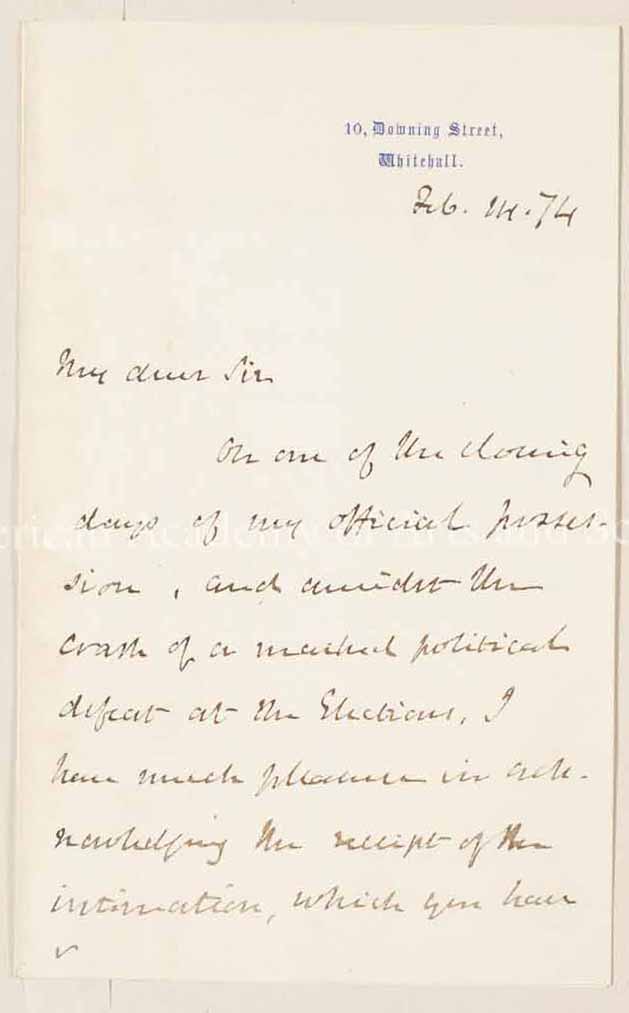 10, Downing Street,
Whitehall.
Feb. 14. 74
My dear Sir
On one of the closing
days of my official posses-
sion, and amidst the
crash of a marked political
defeat at the Elections, I
have much pleasure in ack-
nowledging the receipt of the
intimation, which you have
American Academy of Arts and Sc